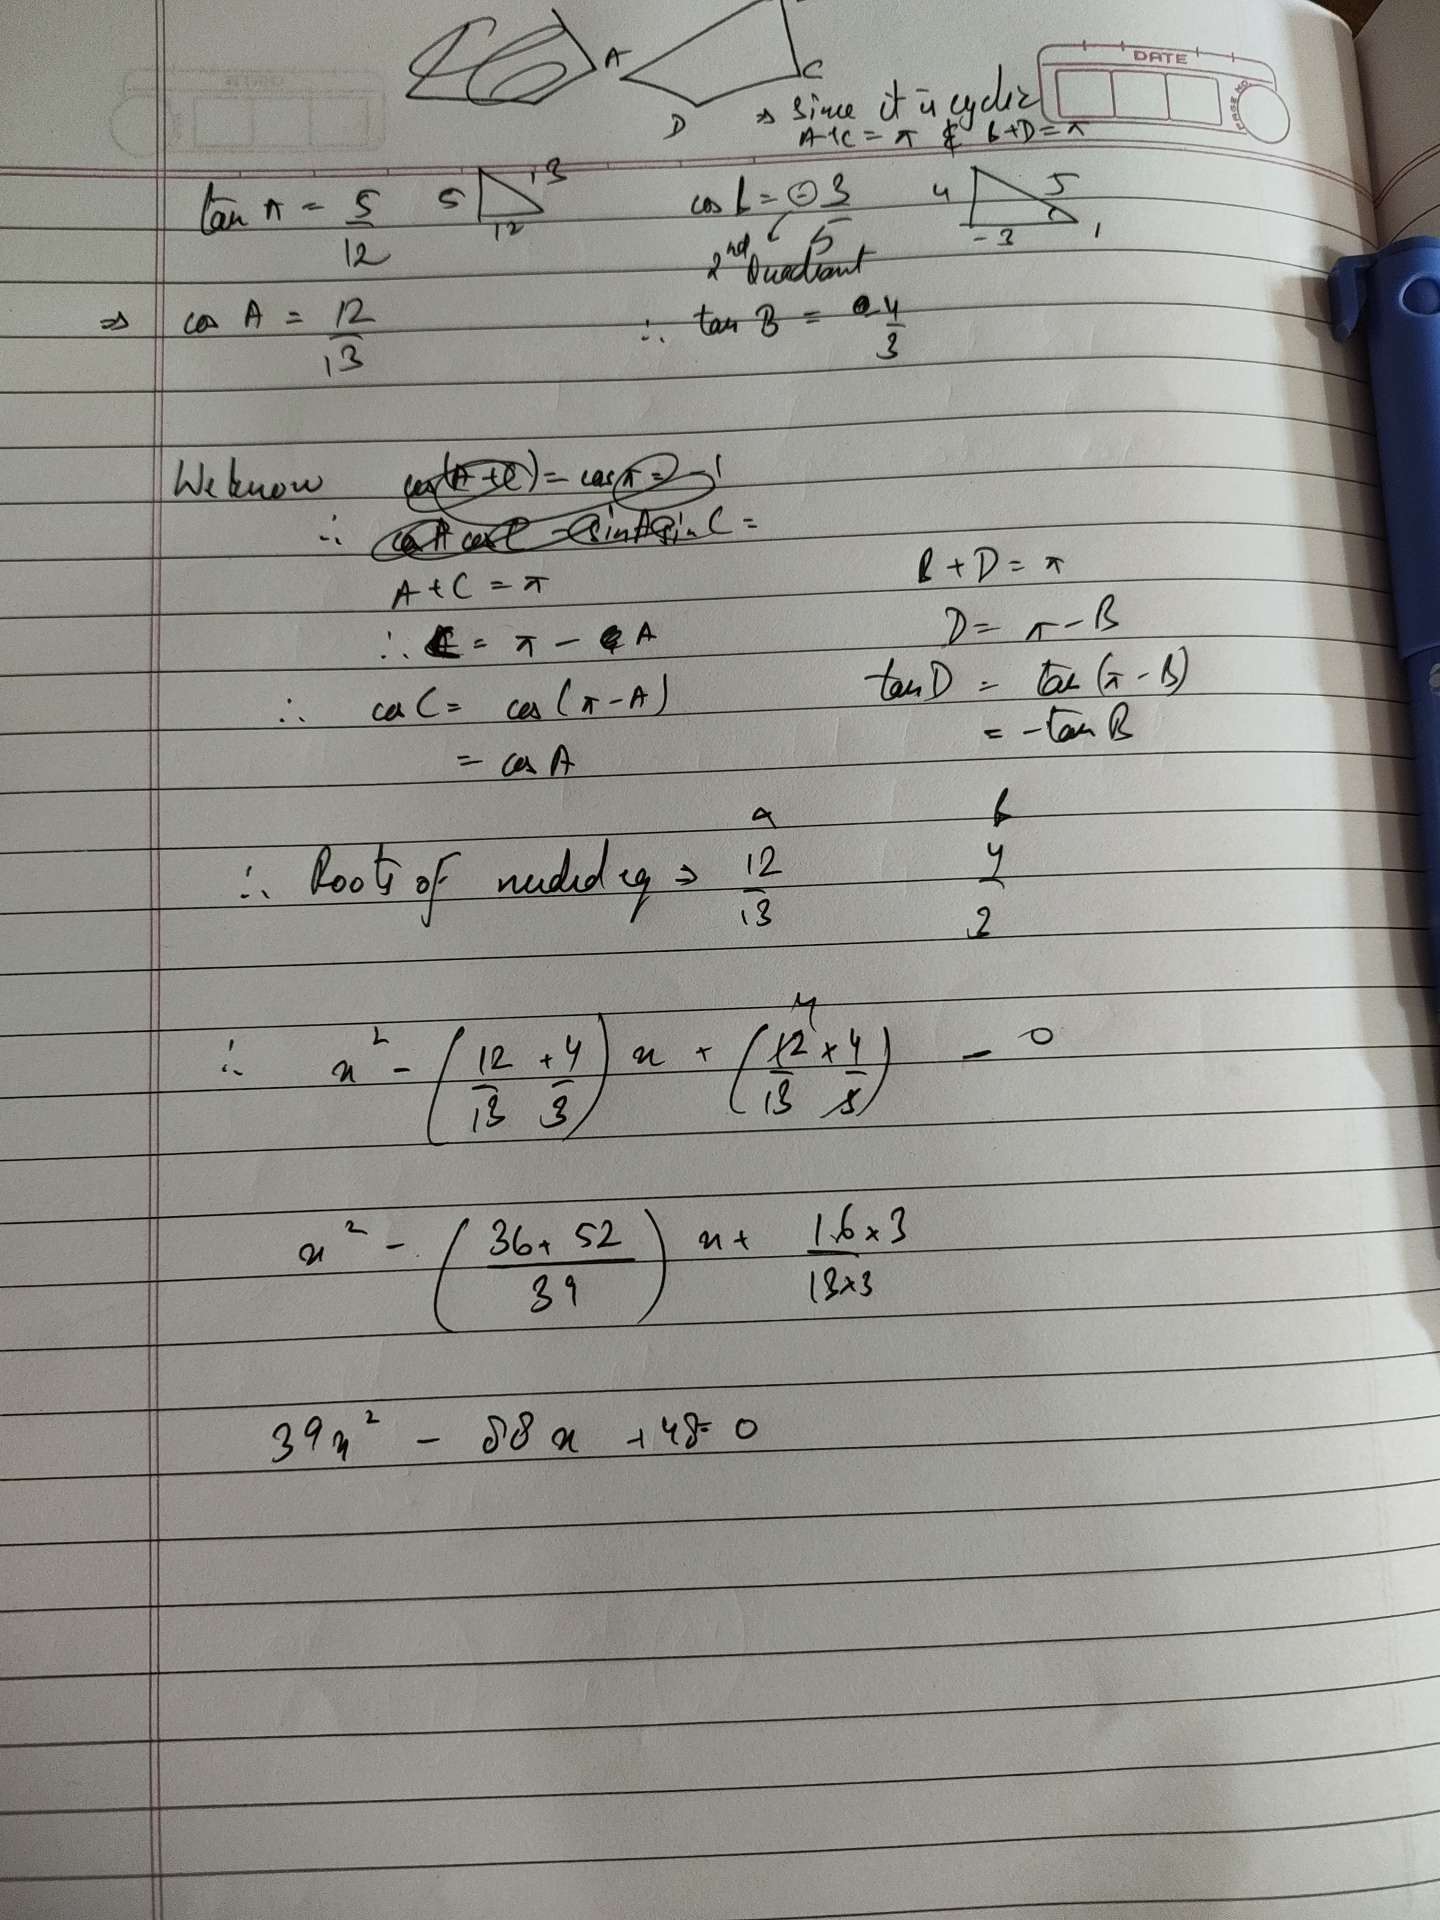 A
C
D
DATE
PAGE NO.
⇒ Since it is cyclic
A+C = π & B+D = π
tan A = 5/12 5 13 12
cos B = -3/5 4 5 -3
2nd Quadrant
⇒ cos A = 12/13
∴ tan B = -4/3
We know cos(A+C) = cos π = -1
∴ cos A cos C - sin A sin C =
A + C = π
∴ C = π - A
∴ cos C = cos (π - A)
= cos A
B + D = π
D = π - B
tan D = tan (π - B)
= -tan B
a b
∴ Roots of needed eq ⇒ 12/13 4/3
4
∴ x² - (12/13 + 4/3) x + (12/13 × 4/3) = 0
x² - (36 + 52 / 39) x + 16×3 / 13×3
39x² - 88x + 48 = 0